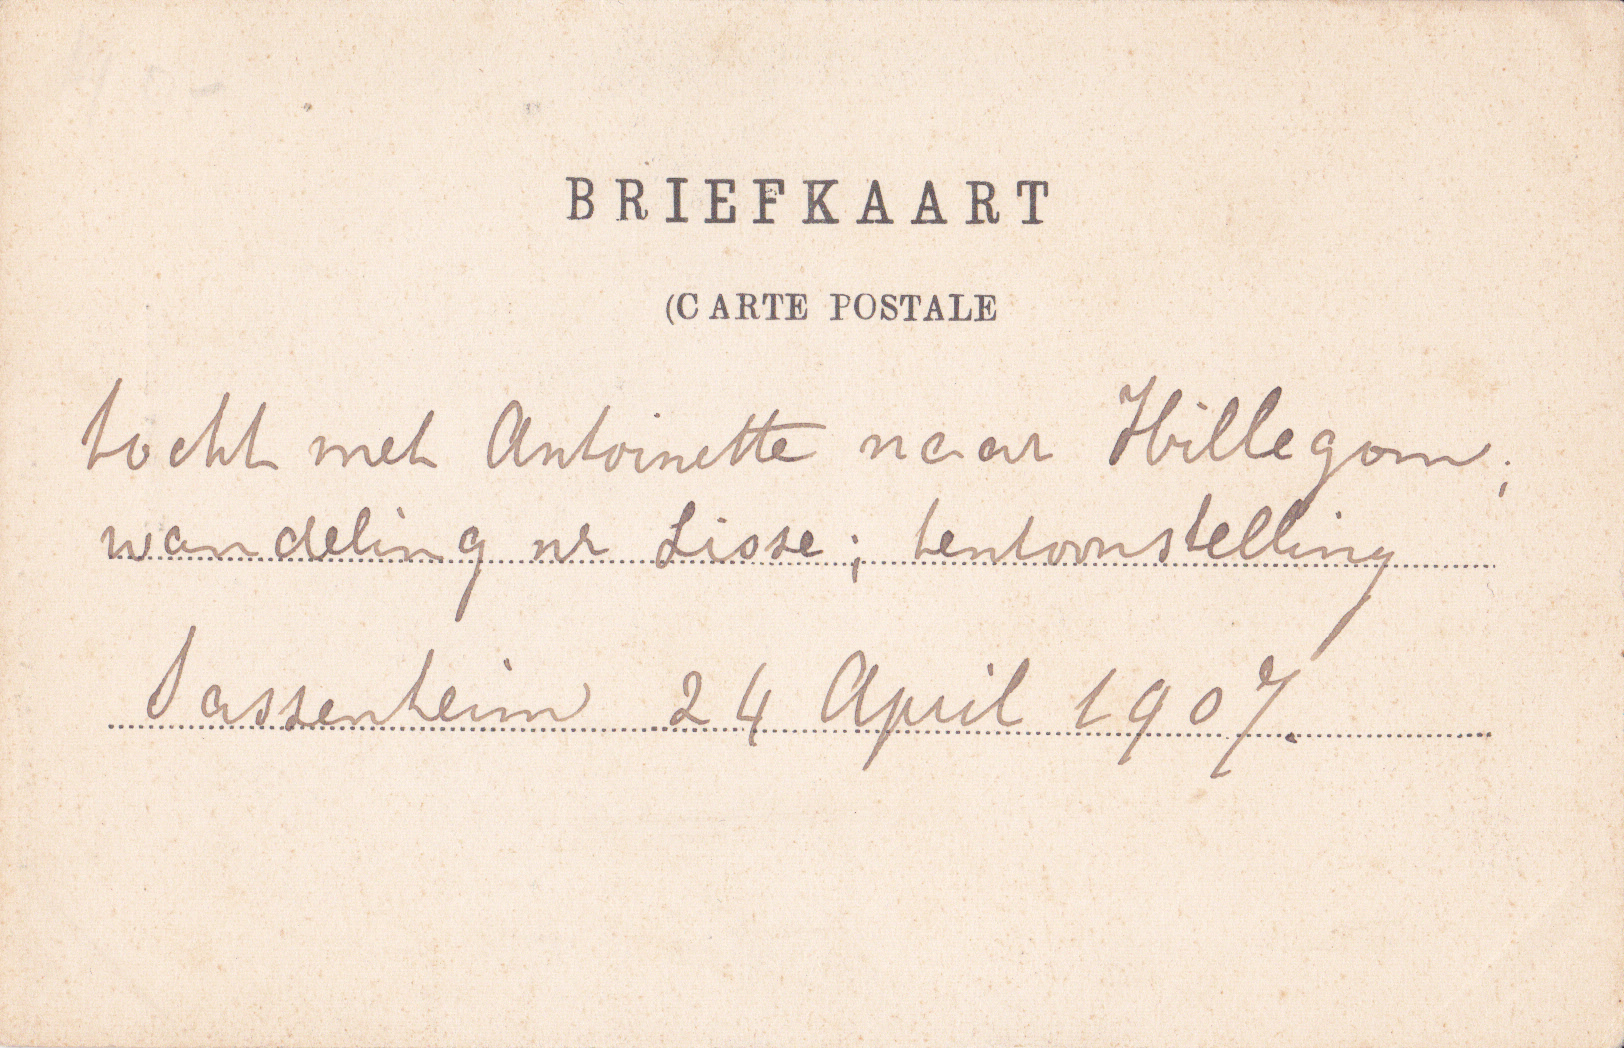 BRIEFKAART
(CARTE POSTALE
tocht met Antoinette naar Hillegom;
wandeling nr Lisse; tentoonstelling
Sassenheim 24 April 1907.